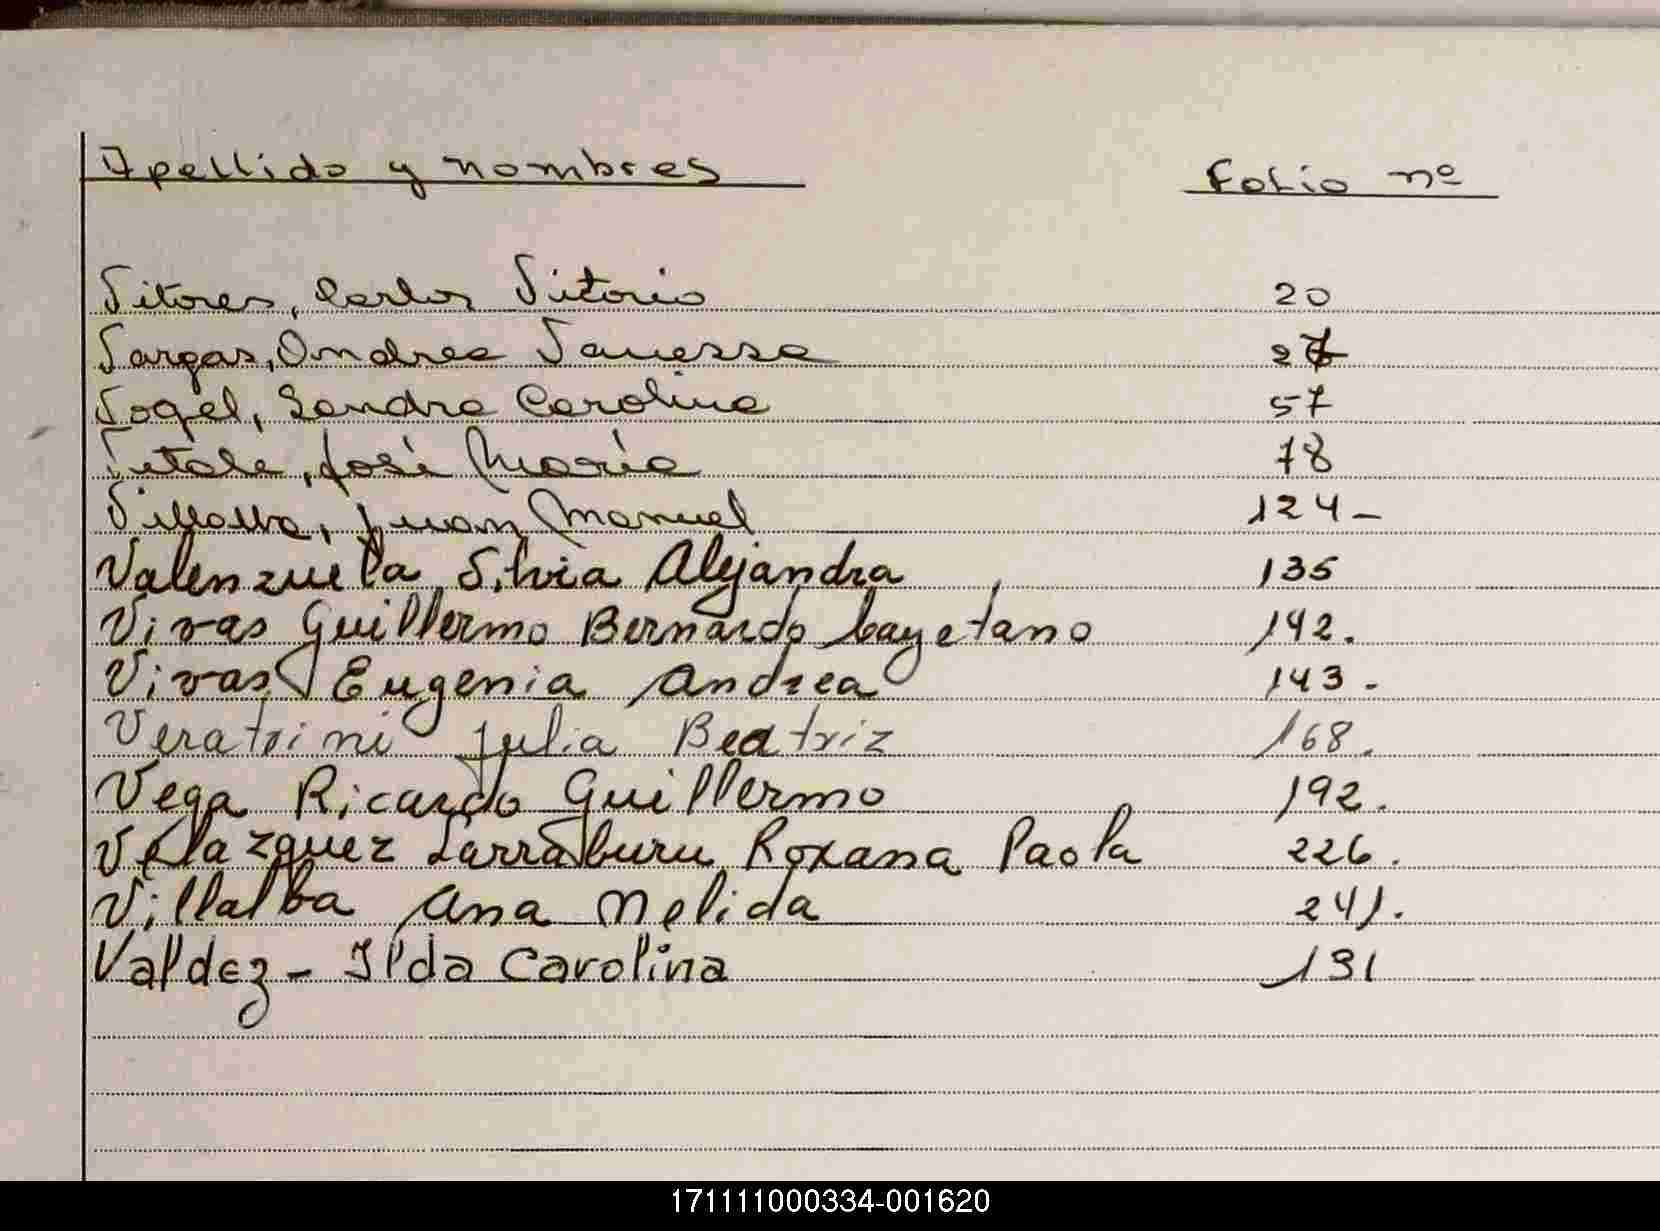 Apellido y nombres Folio nº
Vitores, Carlos Vitorio 20
Vargas, Andrea Vanessa
Vogel, Sandra Carolina 57
Vitale, José María 78
Villalba, Juan Manuel 124-
Valenzuela Silvia Alejandra 135
Vivas Guillermo Bernardo Cayetano 142.
Vivas, Eugenia Andrea 143.
Veratrini Julia Beatriz 168.
Vega Ricardo Guillermo 192.
Velazquez Larraburu Roxana Paola 226.
Villalba Ana Nelida 241.
Valdez- Ilda Carolina 191
171111000334-001620